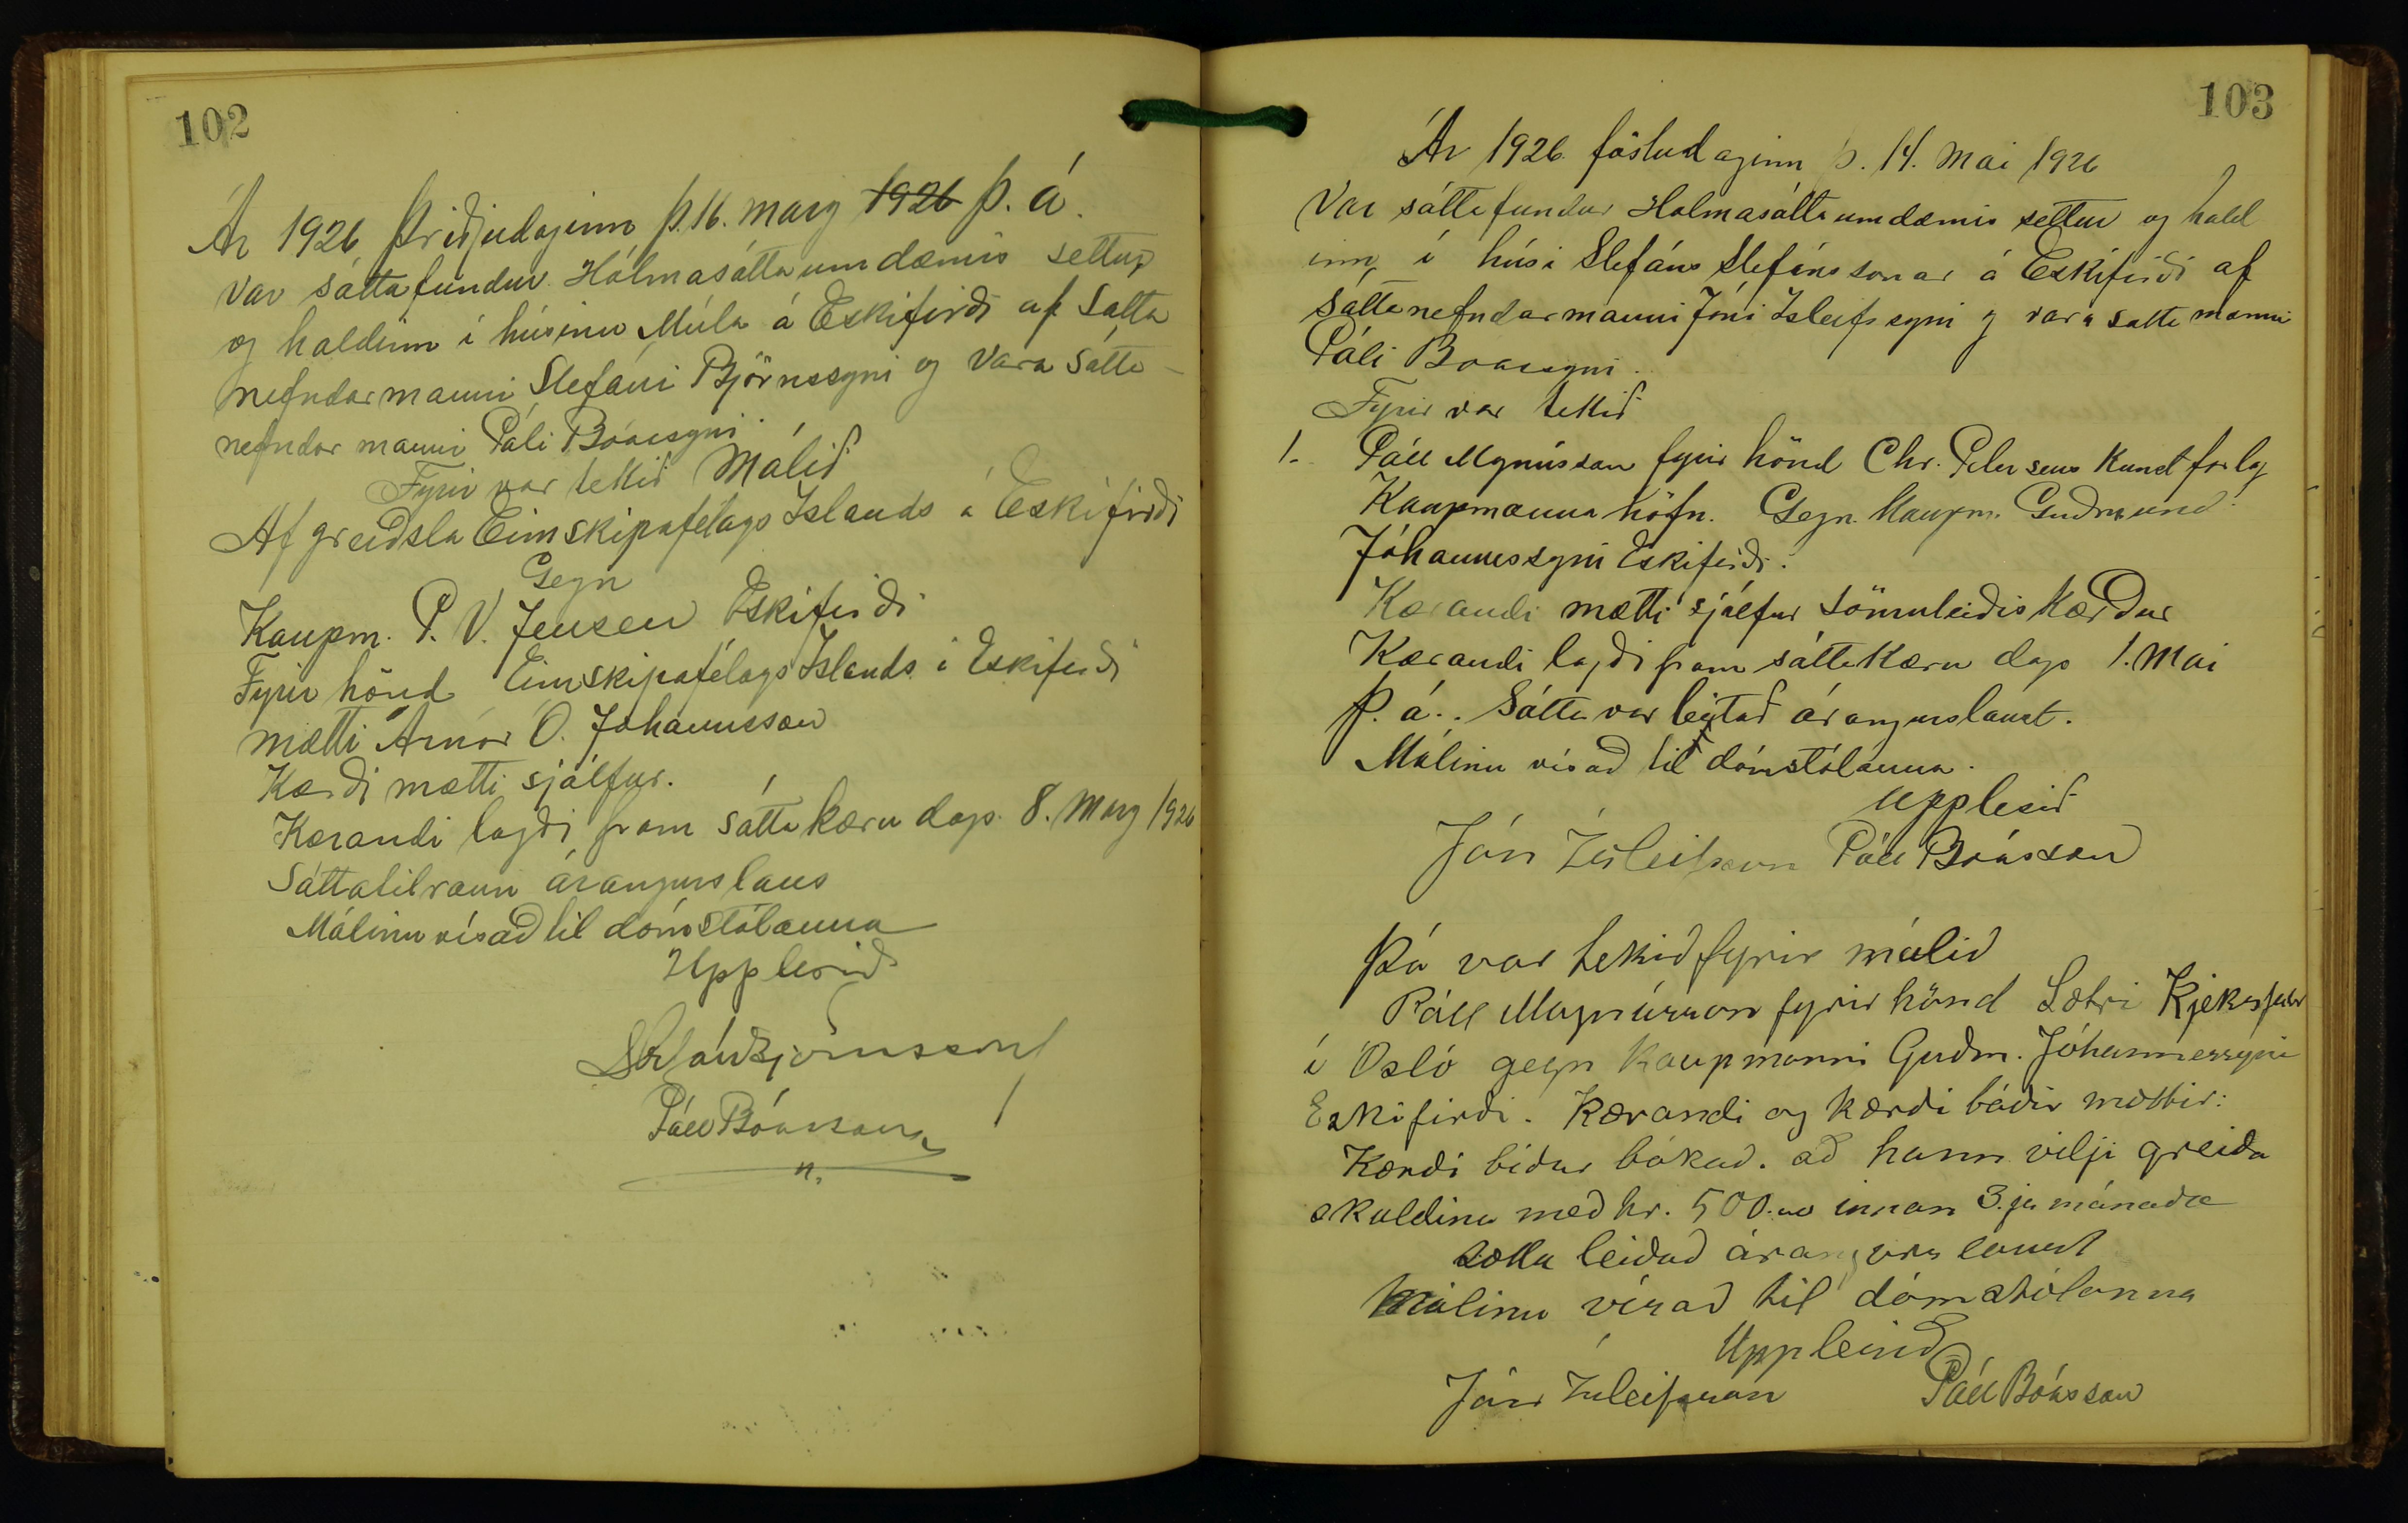 102
Ár 1926 þriðjudaginn þ. 16. marz 1926 þ. á.
var sáttafundur Hólmasáttaumdæmis settur
og haldinn í húsinu Múla á Eskifirði af Sátta
nefndarmanni Stefáni Björnssyni og vara sátta-
nefndar manni Páli Bóassyni.
Fyrir var tekið Málið
Afgreiðsla Eimskipafélags Islands á Eskifirði
Gegn
Kaupm. P. V. Jensen Eskifirði
Fyrir hönd Eimskipafélags Islands á Eskifirði
mætti Arnór Ó. Jóhannsson
Kærði mætti sjálfur.
Kærandi lagði fram sáttakæru dags. 8. Marz 1926
Sáttatilraun árangurslaus
Málinu vísað til dómstólanna
Upplesið
Stefán Björnsson
Páll Bóasson
103
Ár 1926 föstudaginn þ. 14. mai 1926
Var sáttafundur Holmasáttaumdæmis settur og hald
inn, í húsi Stefáns Stefánssonar á Eskifirði af
sáttanefndarmanni Jóni Isleifssyni og vara satta manni
Páli Boassyni.
Fyrir var tekið
1. Páll Magnússon fyrir hönd Chr. Petersens Kunstforlag
Kaupmannahöfn. Gegn. Kaupm. Guðmund
Jóhannessyni Eskifirði.
Kærandi mætti sjálfur sömuleiðis kærður
Kærandi lagði fram sáttakæru dags 1. Mai
þ. á.. Sátta var leitað árangurslaust.
Málinu vísað til dómstólanna.
Upplesið
Jón Ísleifsson Páll Bóasson
Þá var tekið fyrir málið
Páll Magnússon fyrir hönd Sætri Kjeksfabr
í Osló gegn kaupmanni Guðm. Jóhannessyni
Eskifirði. Kærandi og kærði báðir mættir:
Kærði biður bókað. að hann vilji greiða
skuldina með kr. 500.00 innan 3.ja mánaða
sátta leiðað árangurslaust
Málinu vísað til dómstólanna
Upplesið
Jón Ísleifsson Páll Bóasson